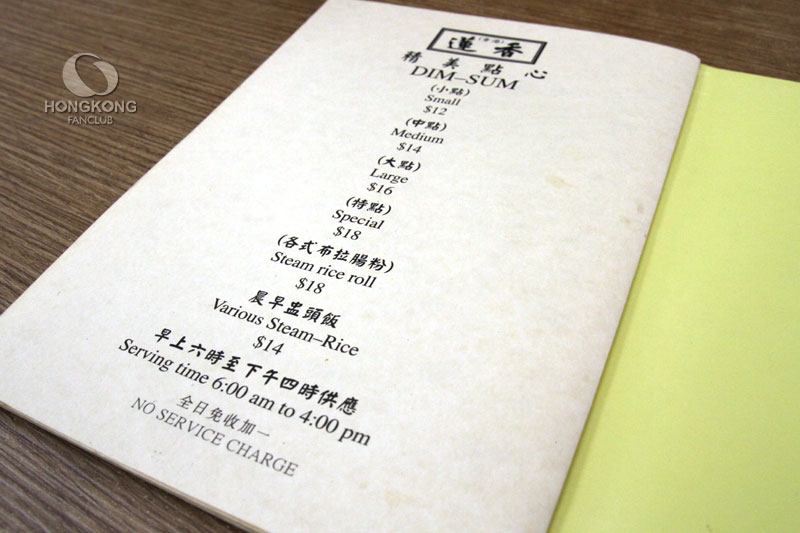 HONGKONG
FANCLUB
蓮香
精美點心
DIM-SUM
(小點)
Small
$12
(中點)
Medium
$14
(大點)
Large
$16
(特點)
Special
$18
(各式布拉腸粉)
Steam rice roll
$18
晨早盅頭飯
Various Steam-Rice
$14
早上六時至下午四時供應
Serving time 6:00 am to 4:00 pm
全日免收加一
NO SERVICE CHARGE